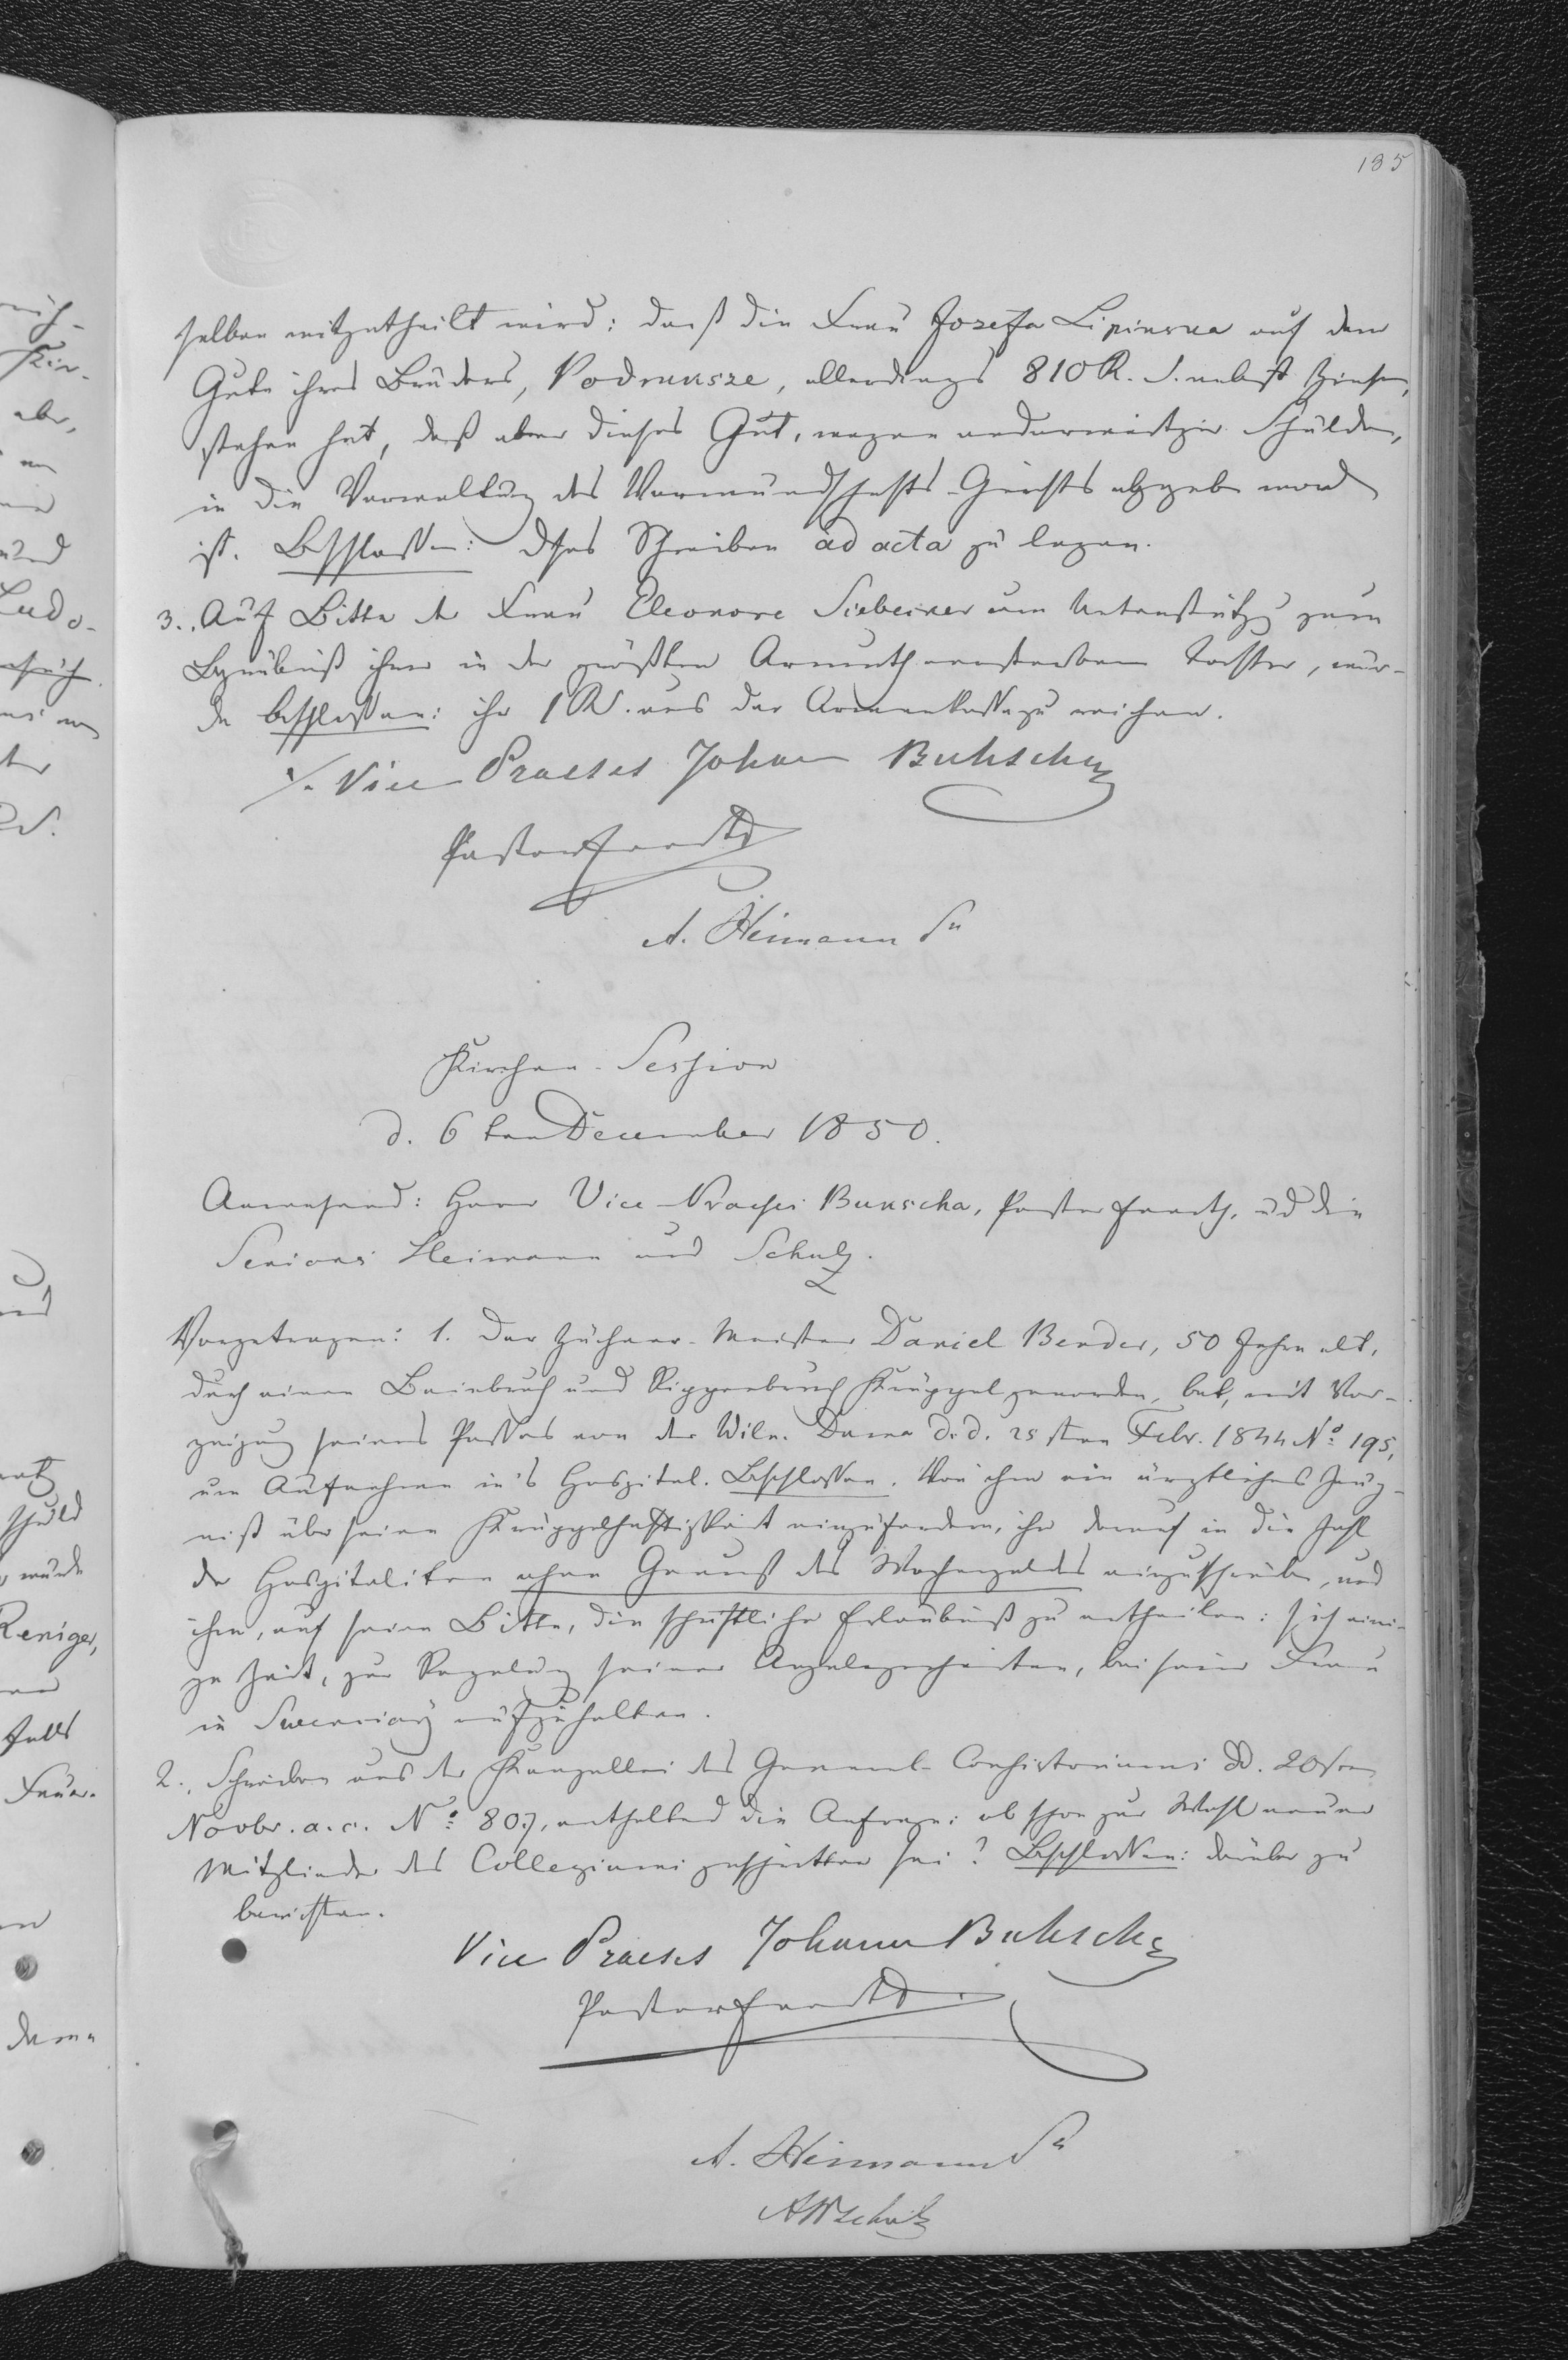 185
selben mitgetheilt wird: daß die Frau Josefa Lipinska auf dem
Gute ihres Bruders, Podruksze, allerdings 810 R. S. nebst Zinsen,
stehen hat, daß aber dieses Gut, wegen anderweitiger Schulden,
in die Verwaltung des Vormundschafts-Gerichts abgegeben worden
ist. Beschlossen: dses Schreiben ad acta zu legen.
3. Auf Bitte der Frau Eleonore um Unterstützung zum
Begräbniß ihrer in der größten Armuth verstorbenen Tochter, wur-
de beschlossen: ihr 1 R. aus der Armenkasse zu reichen.
Vice Praeses Johann Buksch
Pastor
A. Heimann Sn
Kirchen-Session
d. 6ten December 1850.
Anwesend: Herr Vice-Praeses Bukscha, Pastor und die
Seniors Heimann und Schulz.
Vorgetragen: 1. Der Züchner-Meister Daniel Bender, 50 Jahre alt,
durch einen Beinbruch und Rippenbruch Krüppel geworden, bat, mit Vor-
zeigung seines Passes von der Wiln. Duma d. d. 25sten Febr. 1844 No 195,
um Aufnahme in's Hospital. Beschlossen. Von ihm ein ärztliches Zeug-
niß über seine Krüppelhaftigkeit einzufordern, ihn darauf in die Zahl
der Hospitaliten ohne Genuß des Wochengeldes einzuschreiben, und
ihm, auf seine Bitte, die schriftliche Erlaubniß zu ertheilen: sich eini-
ge Zeit, zur Regelung seiner Angelegenheiten, bei seiner Frau
in aufzuhalten.
2. Schreiben aus der Kanzellei des General-Consistoriums dd. 20sten
Novbr. a. c. No 807, enthaltend die Anfrage: ob schon zur Wahl neuer
Mitglieder des Collegiums geschritten sei? Beschlossen: darüber zu
berichten.
Vice Praeses Johann Buksch
Pastor
A. Heimann Sn
AW Schulz